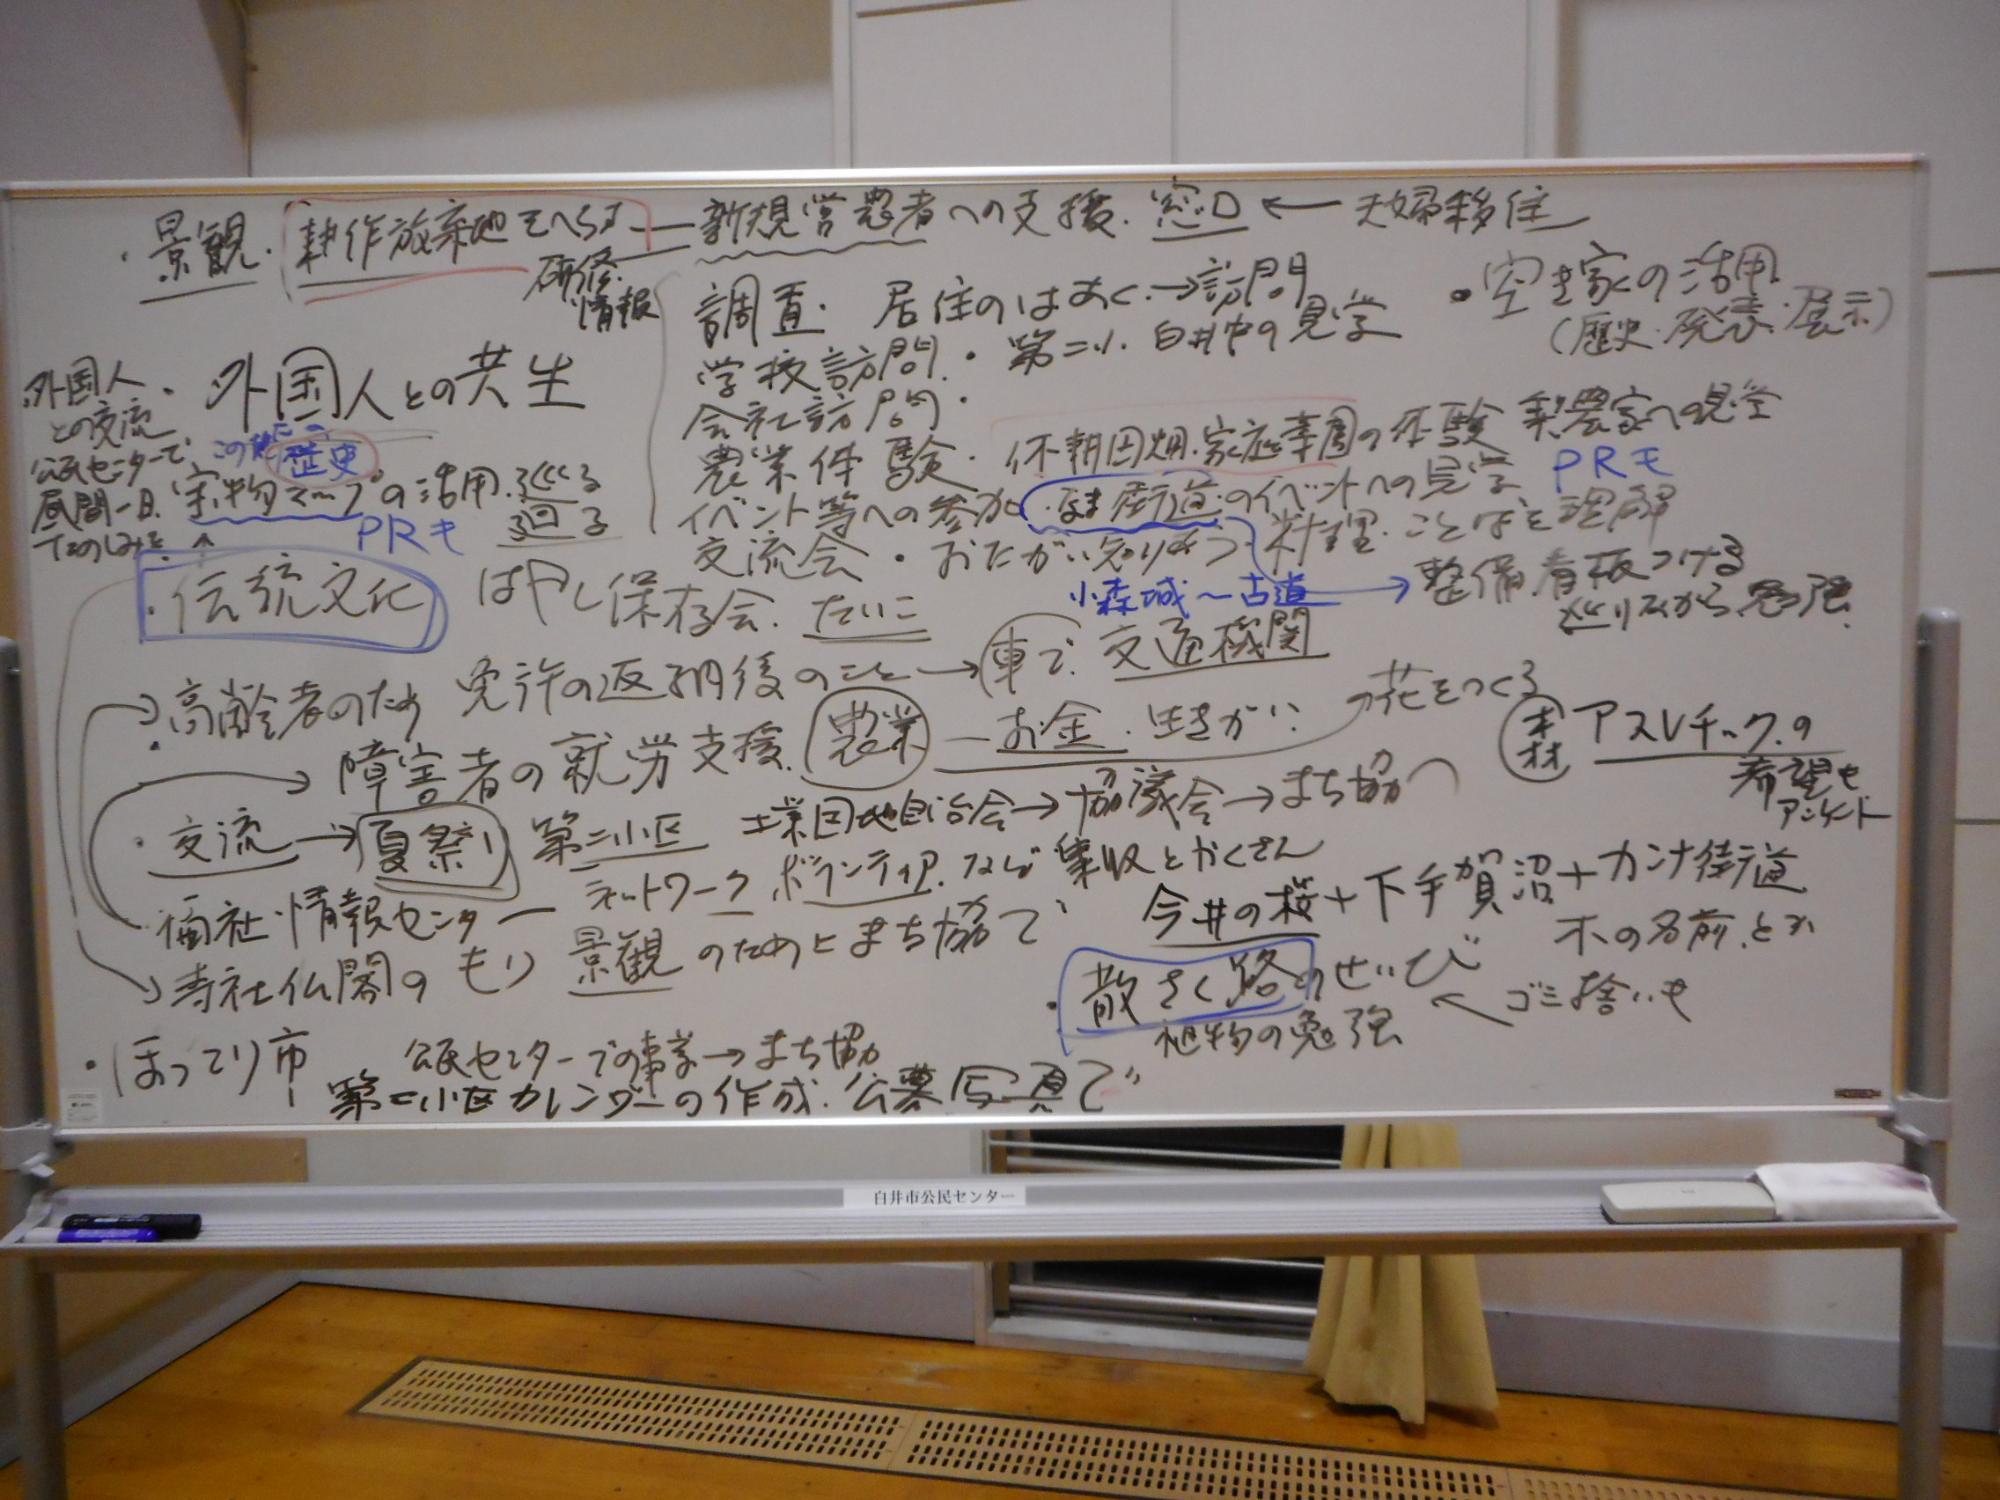 ・景観・耕作放棄地をへらす―新規営農者への支援・窓口 ← 夫婦移住
研修
情報
調査・居住のはあく→訪問
・空き家の活用
(歴史・発表・展示)
学校訪問・第二小・白井中の見学
会社訪問・
・外国人との共生
・外国人
との交流
公民センターで
昼間一日
たのしみを
この地に
歴史
宝物マップの活用・巡る
廻る
PRも
農業体験・休耕田畑・家庭菜園の体験 梨農家への見学
PRも
イベント等への参加 街道のイベントへの見学
交流会・おたがい知り合う 料理・ことばを理解
小森城〜古道 → 整備看板つける
勉強
・伝統文化 はやし保存会・たいこ
高齢者のため 免許の返納後のこと→車で 交通機関
障害者の就労支援 農業―お金・生きがい の花をつくる
森 アスレチックの
希望も
アンケート
・交流→夏祭り 第二小区 工業団地自治会→協議会→まち協へ
福祉・情報センター ネットワーク ボランティアなど 集収とかくさん
今井の桜+下手賀沼+カンナ街道
木の名前とか
寺社仏閣のもり 景観のためにまち協で
・散さく路のせいび ← ゴミ捨いも
植物の勉強
・ほってり市 公民センターでの事業→まち協
第二小区カレンダーの作成・公募写真で
白井市公民センター